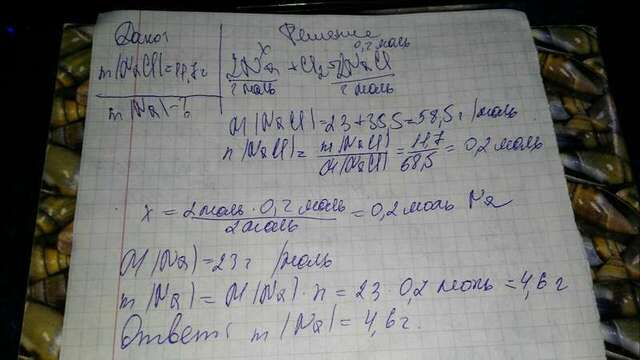 Дано:
Решение
m(NaCl)=11,7г
x 0,2 моль
2Na + Cl2 = 2NaCl
2 моль 2 моль
m(Na)-?
M(NaCl)=23+35,5=58,5 г/моль
n(NaCl)= m(NaCl)/M(NaCl) = 11,7/58,5 = 0,2 моль
x = 2 моль · 0,2 моль/2 моль = 0,2 моль Na
M(Na)=23 г/моль
m(Na)= M(Na)·n = 23·0,2 моль = 4,6 г
Ответ: m(Na)=4,6 г.